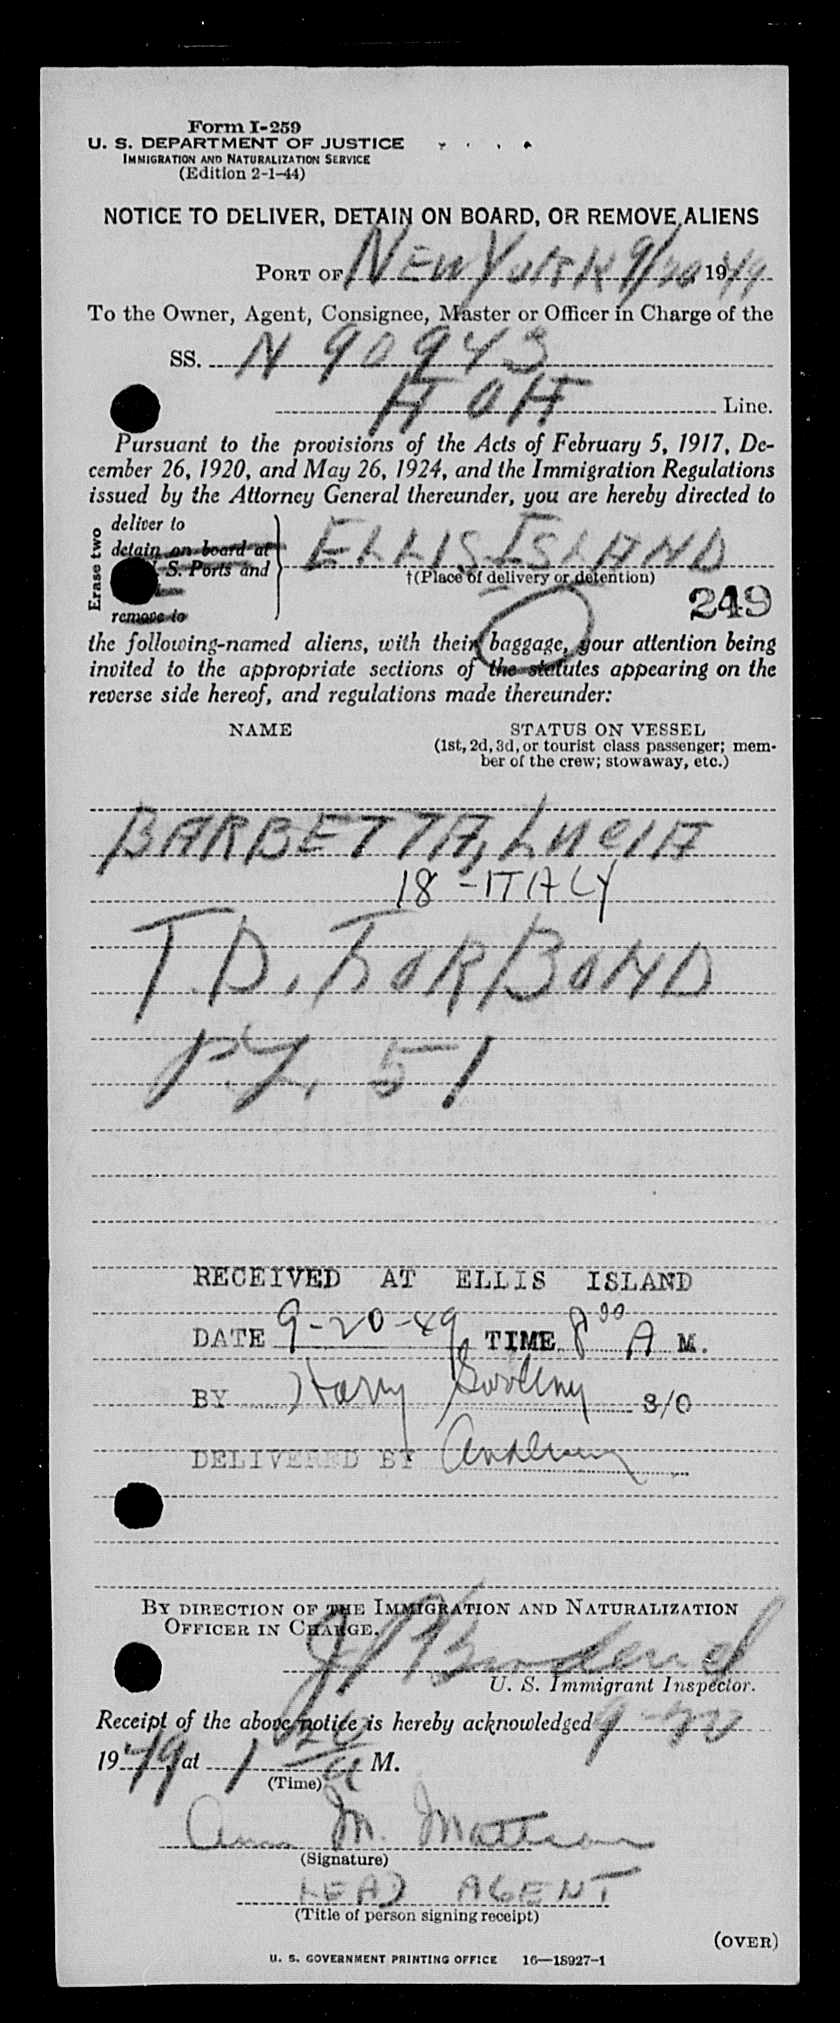 Form I-259
U. S. DEPARTMENT OF JUSTICE
IMMIGRATION AND NATURALIZATION SERVICE
(Edition 2-1-44)
NOTICE TO DELIVER, DETAIN ON BOARD, OR REMOVE, ALIENS
PORT OF NEW YORK 9/20 1949
To the Owner, Agent, Consignee, Master or Officer in Charge of the
SS. N 90943
Line.
Pursuant to the provisions of the Acts of February 5, 1917, De-
cember 26, 1920, and May 26, 1924, and the Immigration Regulations
issued by the Attorney General thereunder, you are hereby directed to
Erase two
deliver to
detain on board at
S. Ports and
remove to
ELLIS ISLAND
†(Place of delivery or detention)
249
the following-named aliens, with their baggage, your attention being
invited to the appropriate sections of the statutes appearing on the
reverse side hereof, and regulations made thereunder:
NAME
STATUS ON VESSEL
(1st, 2d, 3d, or tourist class passenger; mem-
ber of the crew; stowaway, etc.)
BARBETTA, LUCIA
18 - ITALY
T.D. FOR BOND
P.L. 51
RECEIVED AT ELLIS ISLAND
DATE 9-20-49 TIME 8 00 A M.
BY Harry S/O
DELIVERED BY
BY DIRECTION OF THE IMMIGRATION AND NATURALIZATION
OFFICER IN CHARGE.
U. S. Immigrant Inspector.
Receipt of the above notice is hereby acknowledged 9-20
1949, at 1 20 A M.
(Time)
Ann M. Mattson
(Signature)
LEAD AGENT
(Title of person signing receipt)
(OVER)
U. S. GOVERNMENT PRINTING OFFICE 16—18927-1